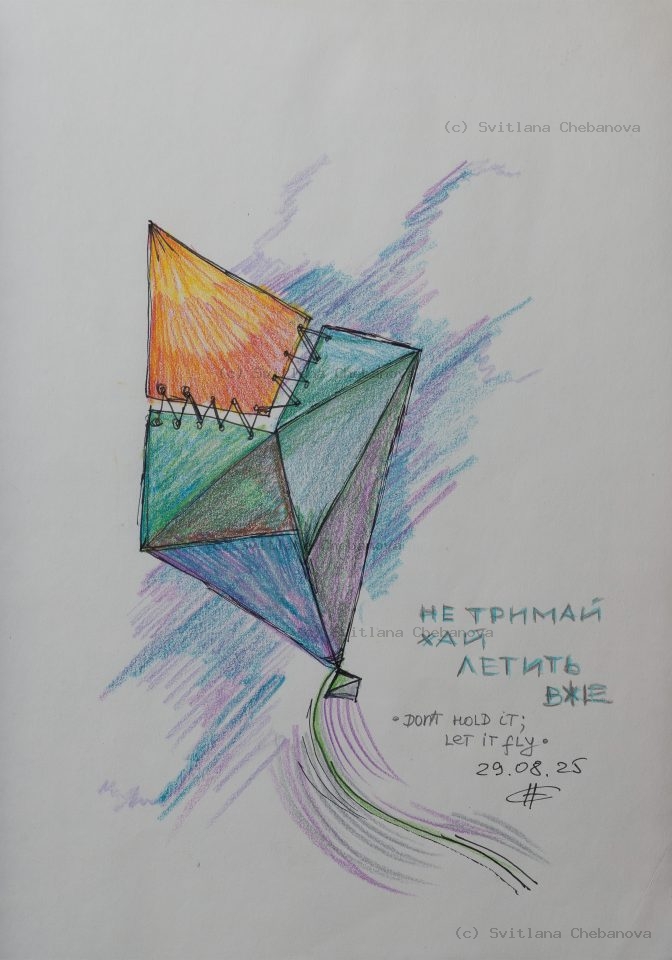 (c) Svitlana Chebanova
(c) Svitlana Chebanova
НЕ ТРИМАЙ
ХАЙ
ЛЕТИТЬ
ВЖЕ
• DON'T HOLD IT;
LET IT FLY •
29.08.25
(c) Svitlana Chebanova